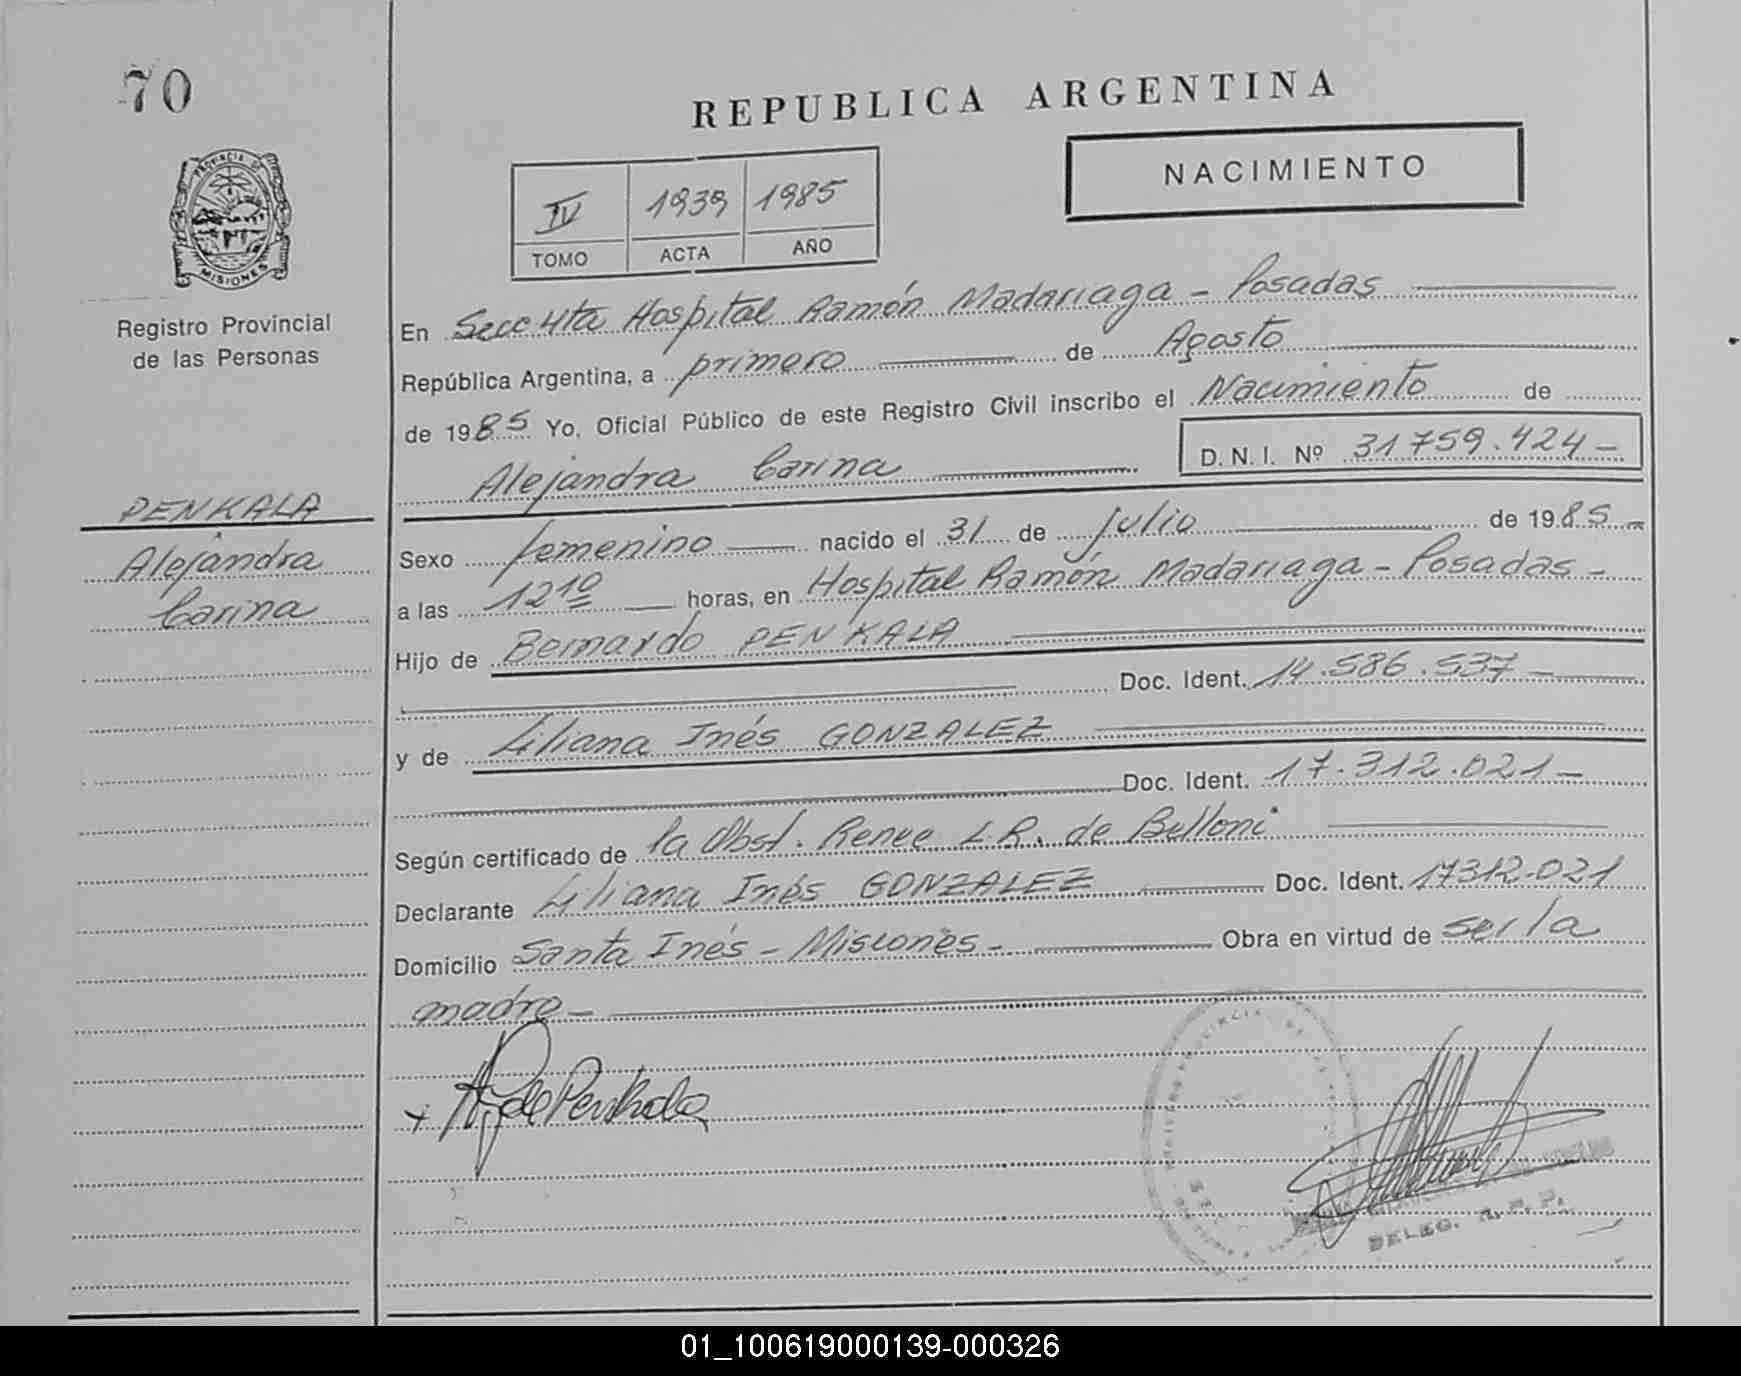 70
REPUBLICA ARGENTINA
NACIMIENTO
IV 1939 1985
TOMO ACTA AÑO
PROVINCIA DE
MISIONES
Registro Provincial
de las Personas
En Secc 4ta Hospital Ramón Madariaga - Posadas
República Argentina, a primero de Agosto
de 1985 Yo, Oficial Público de este Registro Civil inscribo el Nacimiento de
Alejandra Carina D. N. I. Nº 31759.424-
PENKALA
Alejandra
Carina
Sexo femenino nacido el 31 de julio de 1985-
a las 12 10 horas, en Hospital Ramón Madariaga - Posadas -
Hijo de Bernardo PENKALA
Doc. Ident. 14.586.537-
y de Liliana Inés GONZALEZ
Doc. Ident. 17.312.021-
Según certificado de la Obst. Renee L R. de Belloni
Declarante Liliana Inés GONZALEZ Doc. Ident. 17312.021
Domicilio Santa Inés - Misiones - Obra en virtud de ser la
madre -
de Penkala
DELEG. R. P. P.
01_100619000139-000326